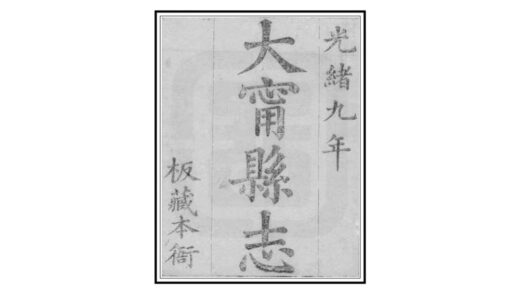 光緒九年
大甯縣志
板藏本衙